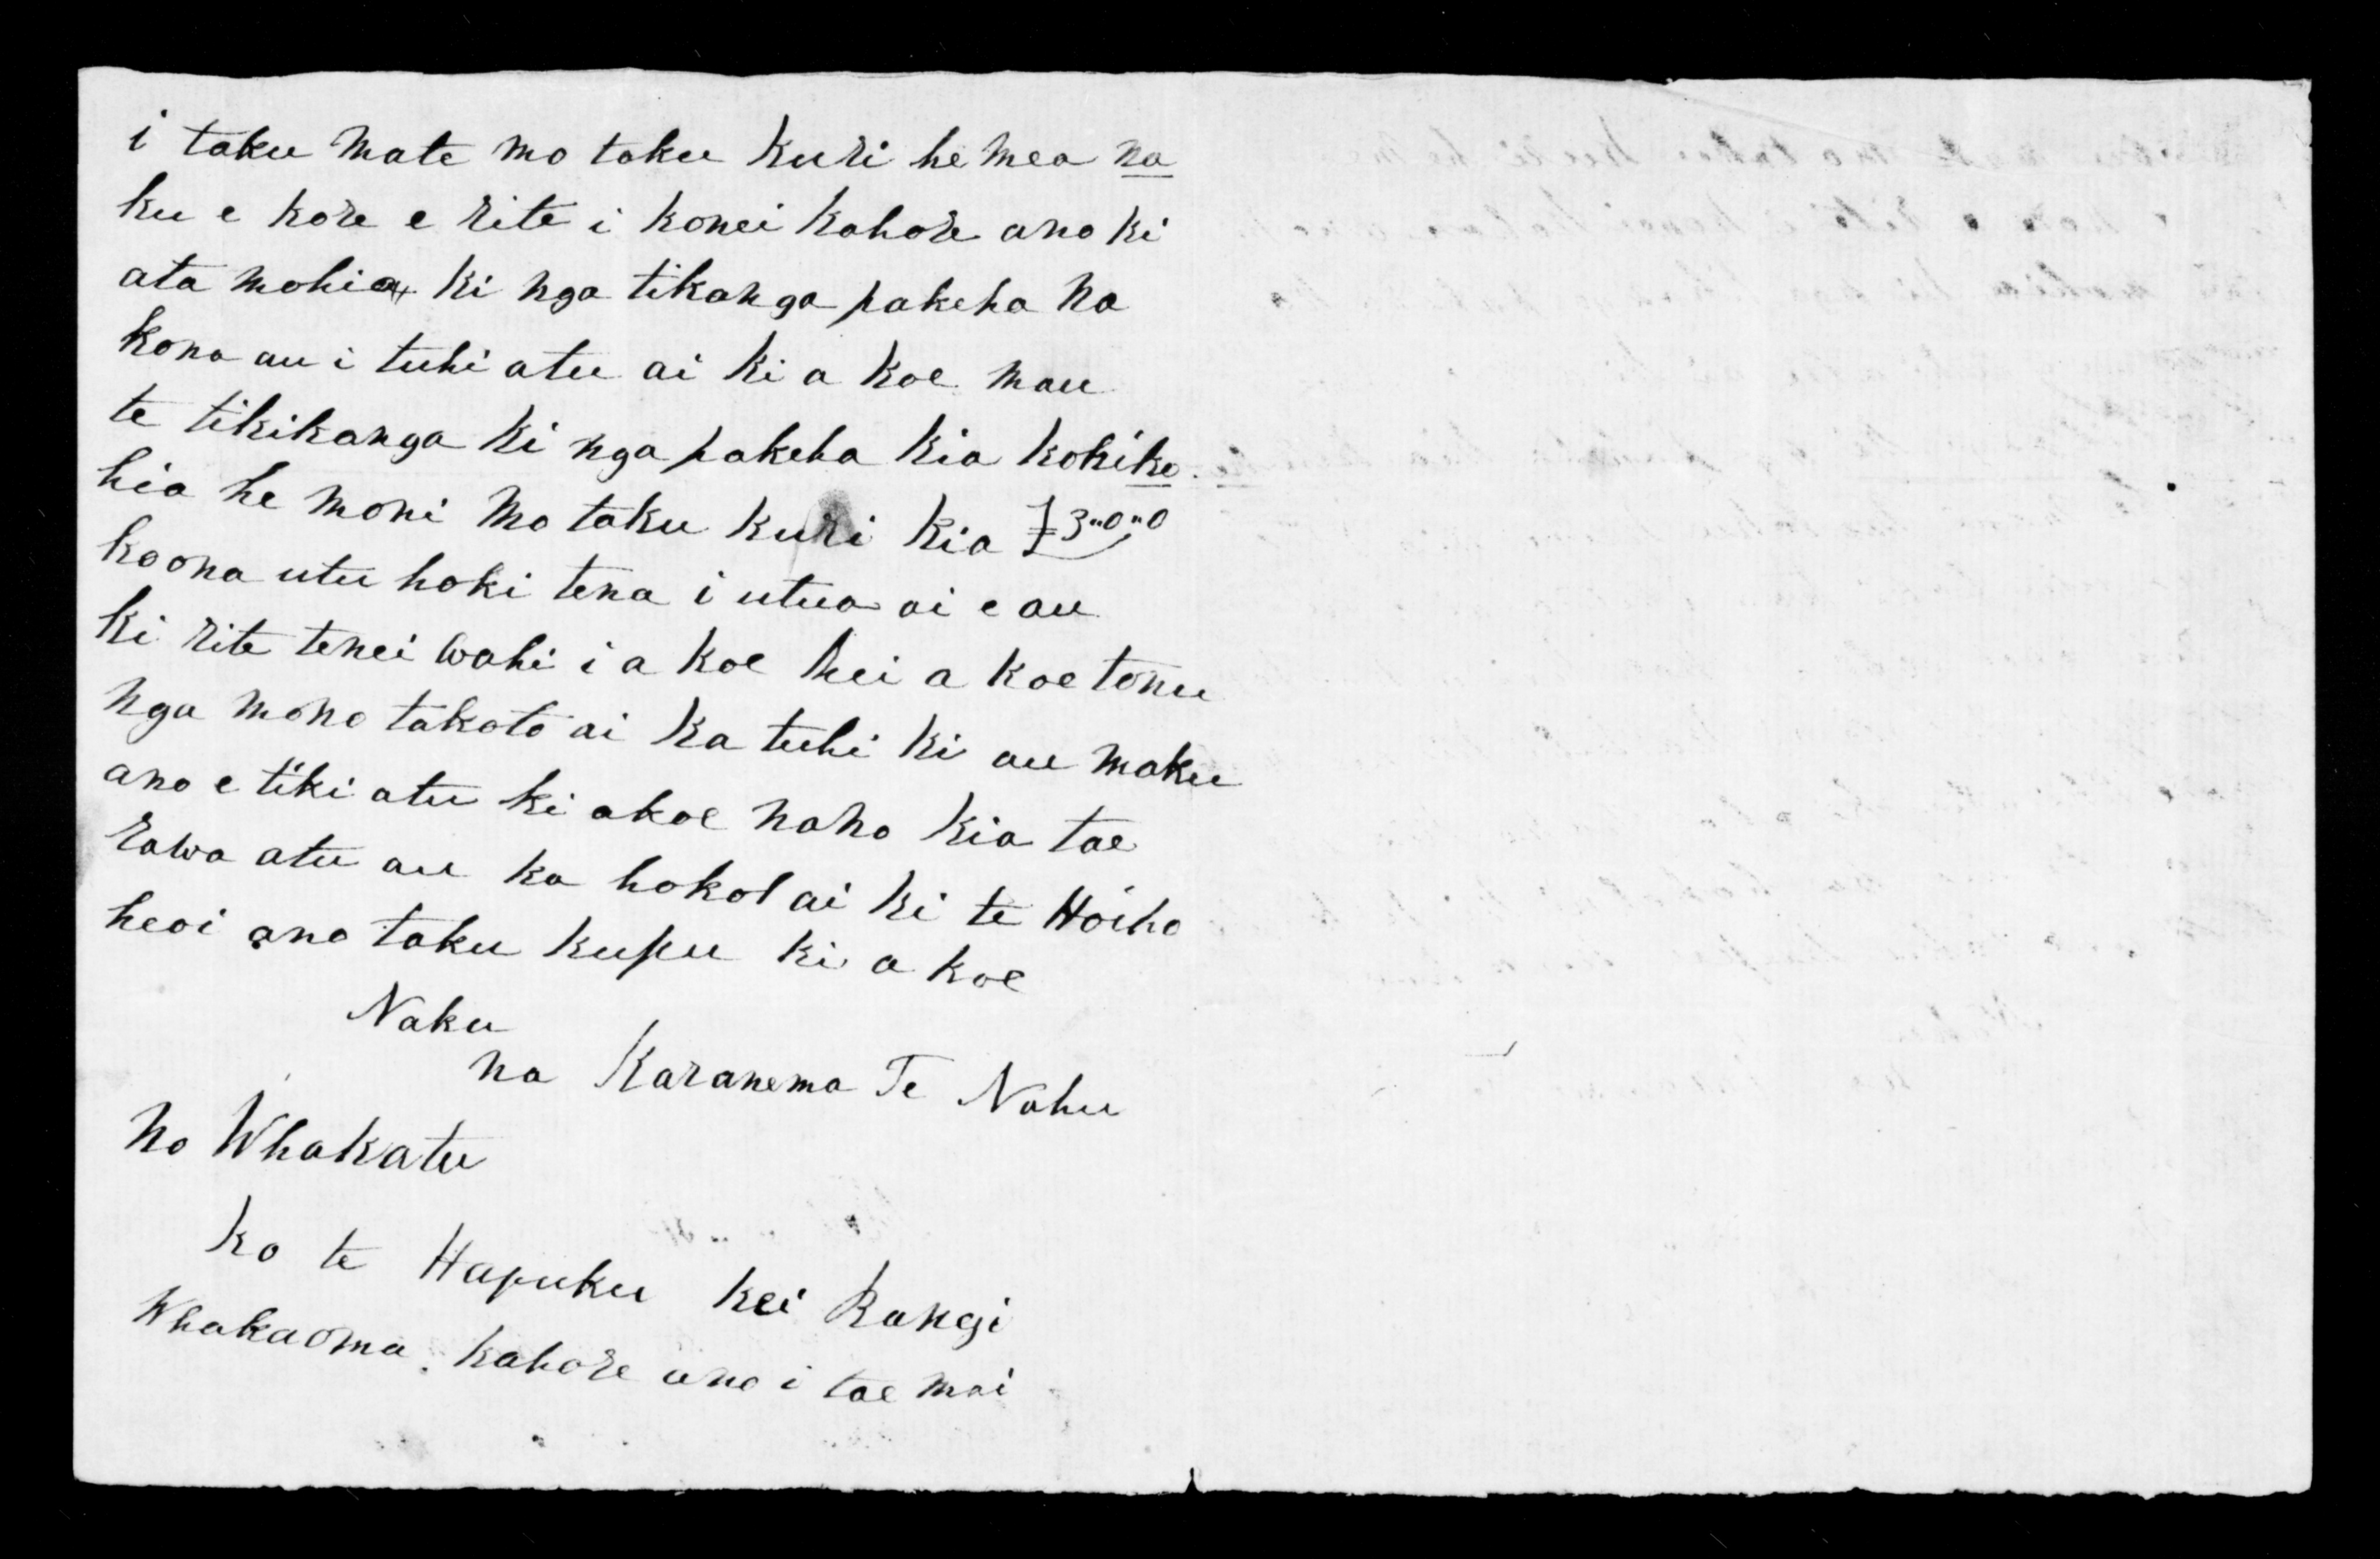 i taku mate mo taku kuri he mea na
ku e kore e rite i konei kahore ano ki
ata mohia ki nga tikanga pakeha na
kona au i tuhi atu ai ki a koe mau
te tikikanga ki nga pakeha kia kohiko
hia he moni mo taku kuri kia £3"0"0
koona utu hoki tena i utua ai e au
ki rite tenei wahi i a koe hei a koe tonu
nga mone takoto ai ka tuhi ki au maku
ano e tiki atu ki akoe noho kia tae
rawa atu au ka hoko ai ki te Hoiho
heoi ano taku kupu ki a koe
Naku
na Karanema Te Nahu
No Whakatu
ko te Hapuku kei Rangi
Whakaoma. kahore ano i tae mai